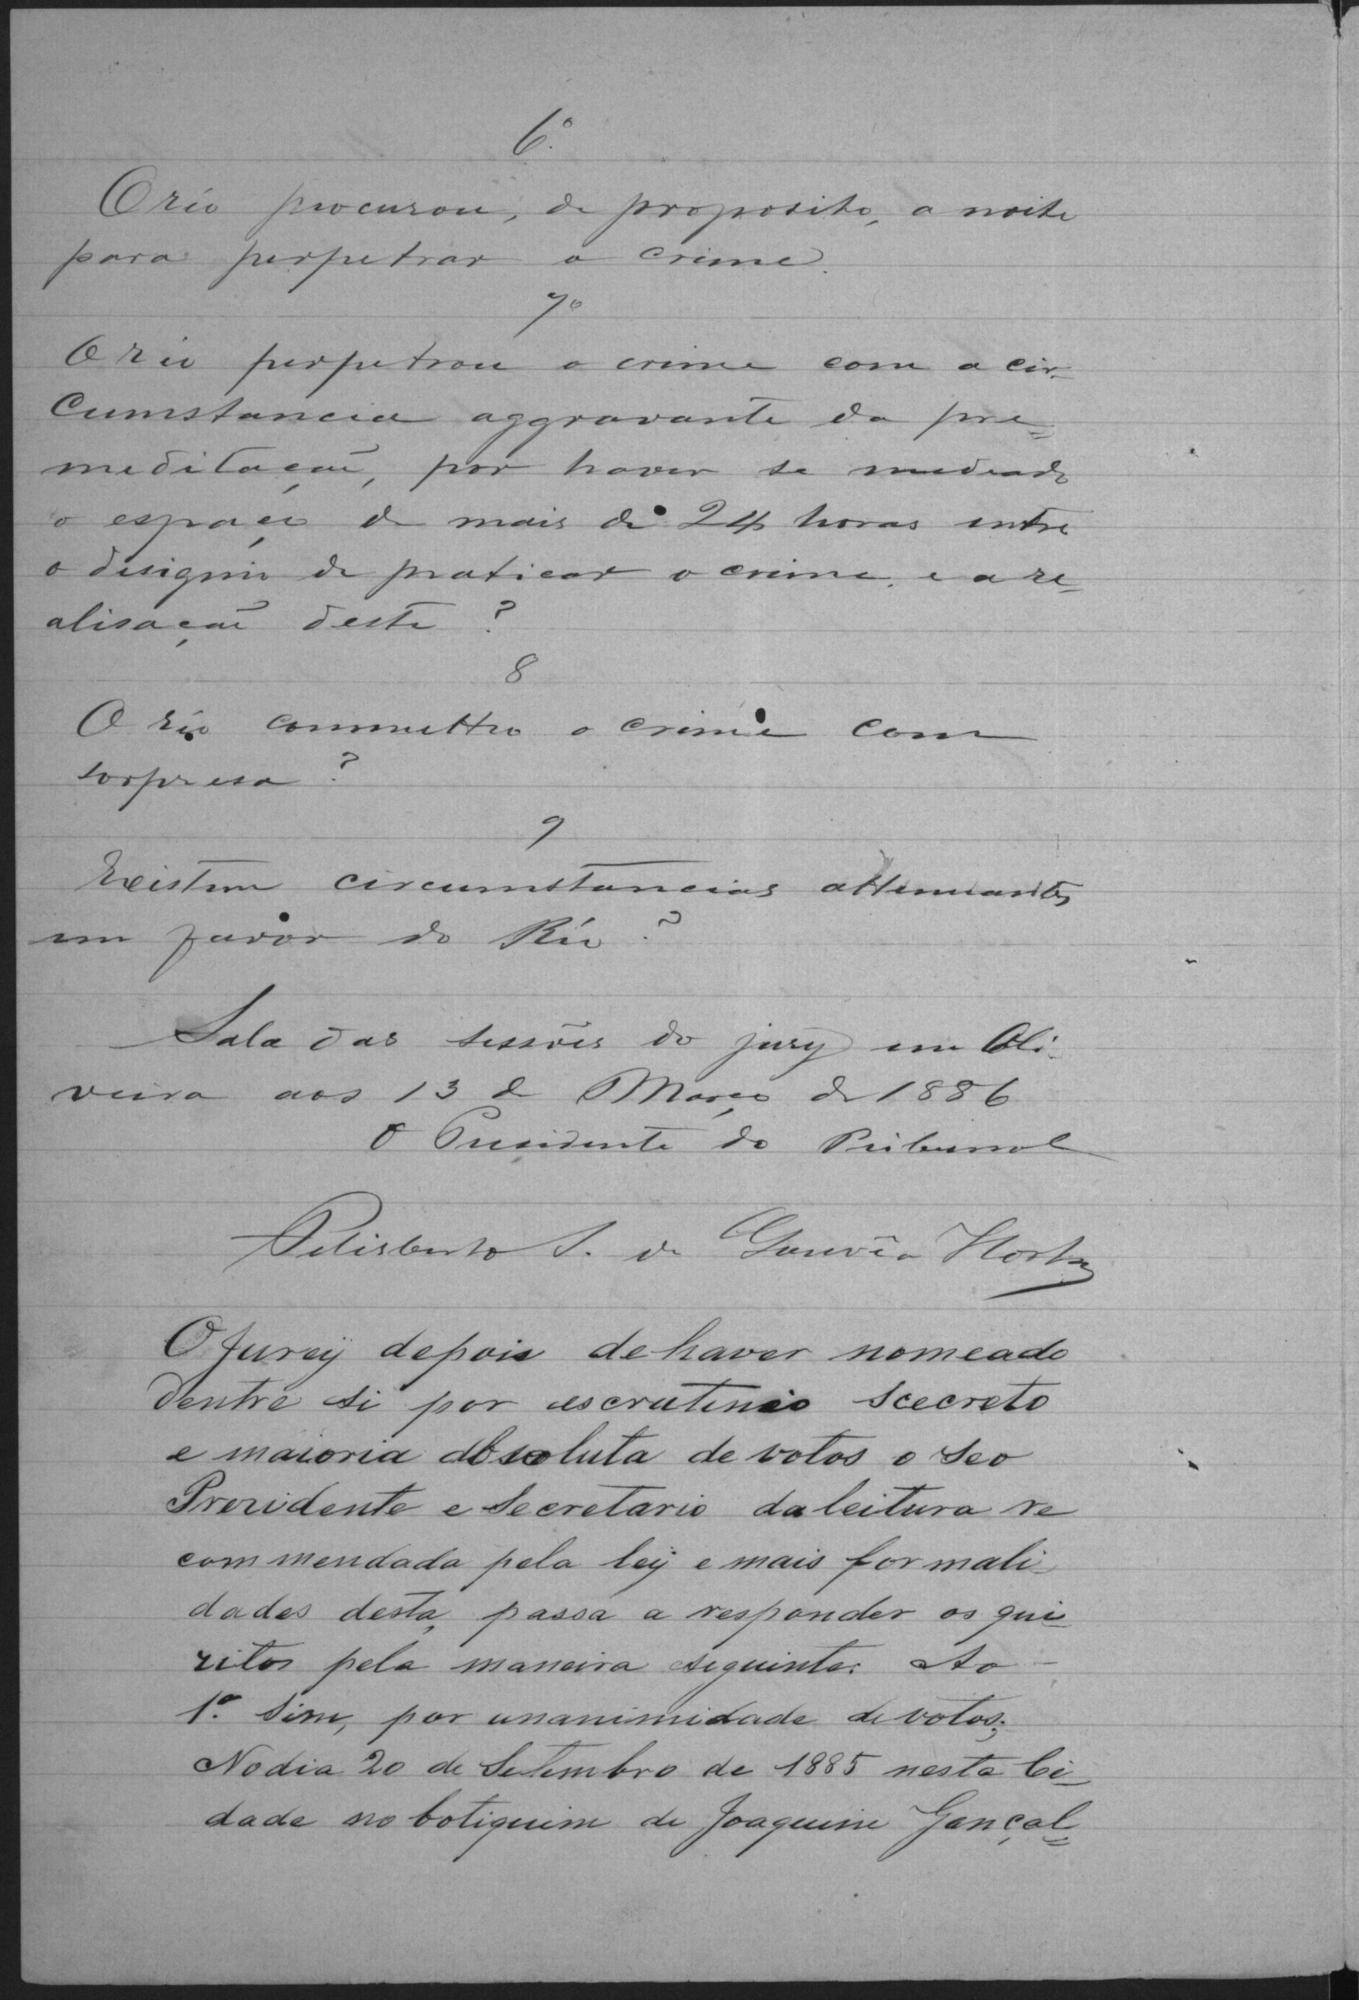 6º
O réo procurou, de proposito, a noite
para perpetrar o crime.
7º
O réo perpetrou o crime com a cir-
cumstancia aggravante da pre=
meditação, por haver se mediado
o espaço de mais de 24 horas entre
o designio de praticar o crime e a re=
alisação deste?
8
O réo commetteu o crime com
sorpresa?
9
Existem circumstancias attenuantes
em favor do Réo?
Sala das sessões do jury em Oli-
veira aos 13 de Março de 1886
O Presidente do Tribunal
Felisberto S. de Gouvêa Horta
O Jurey depois de haver nomeado
dentre si por escrutinio Scecreto
e maioria absoluta de votos o Seo
Prezidente e Secretario da leitura re
commendada pela ley e mais formali-
dades desta, passa a responder os qui=
zitos pela maneira seguinte: Ao -
1º. Sim, por unanimidade de votos;
No dia 20 de Setembro de 1885 nesta Ci=
dade no botiquim de Joaquim Gonçal=